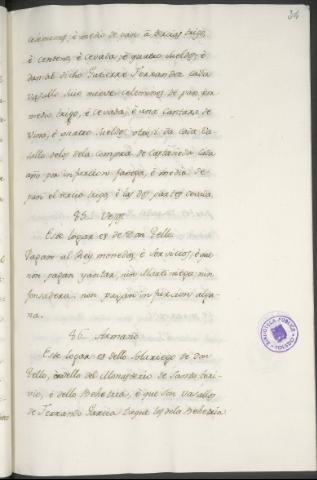 34
celemines, é medio de pan ā tercias trigo,
é centeno, é cevada, é quatro sueldos, é
dan al dicho Gutierre Ferrandez cada
Vasallo suio nueve celemines de pan por
medio trigo, é cevada, é una cantara de
Vino, é quatro sueldos otrosi da cada Va-
sallo delos dela compra de Castañeda cada
año por infurcion fanega, é media de
pan el tercio trigo é las dos partes cevada.
85.
Este logar es de Don Tello
Pagan al Rey monedas, é servicios, é que
non pagan yantar, nin Martiniega, nin
fonsadera, non pagan infurcion algu-
na.
86. Armaño
Este logar es dello Solariego de don
Tello, é dello del Monasterio de Santo Tori-
vio, é dello Behetria, é que son Vasallos
de Ferrando Garcia Duque los dela Behetria
BIBLIOTECA PUBLICA
TOLEDO